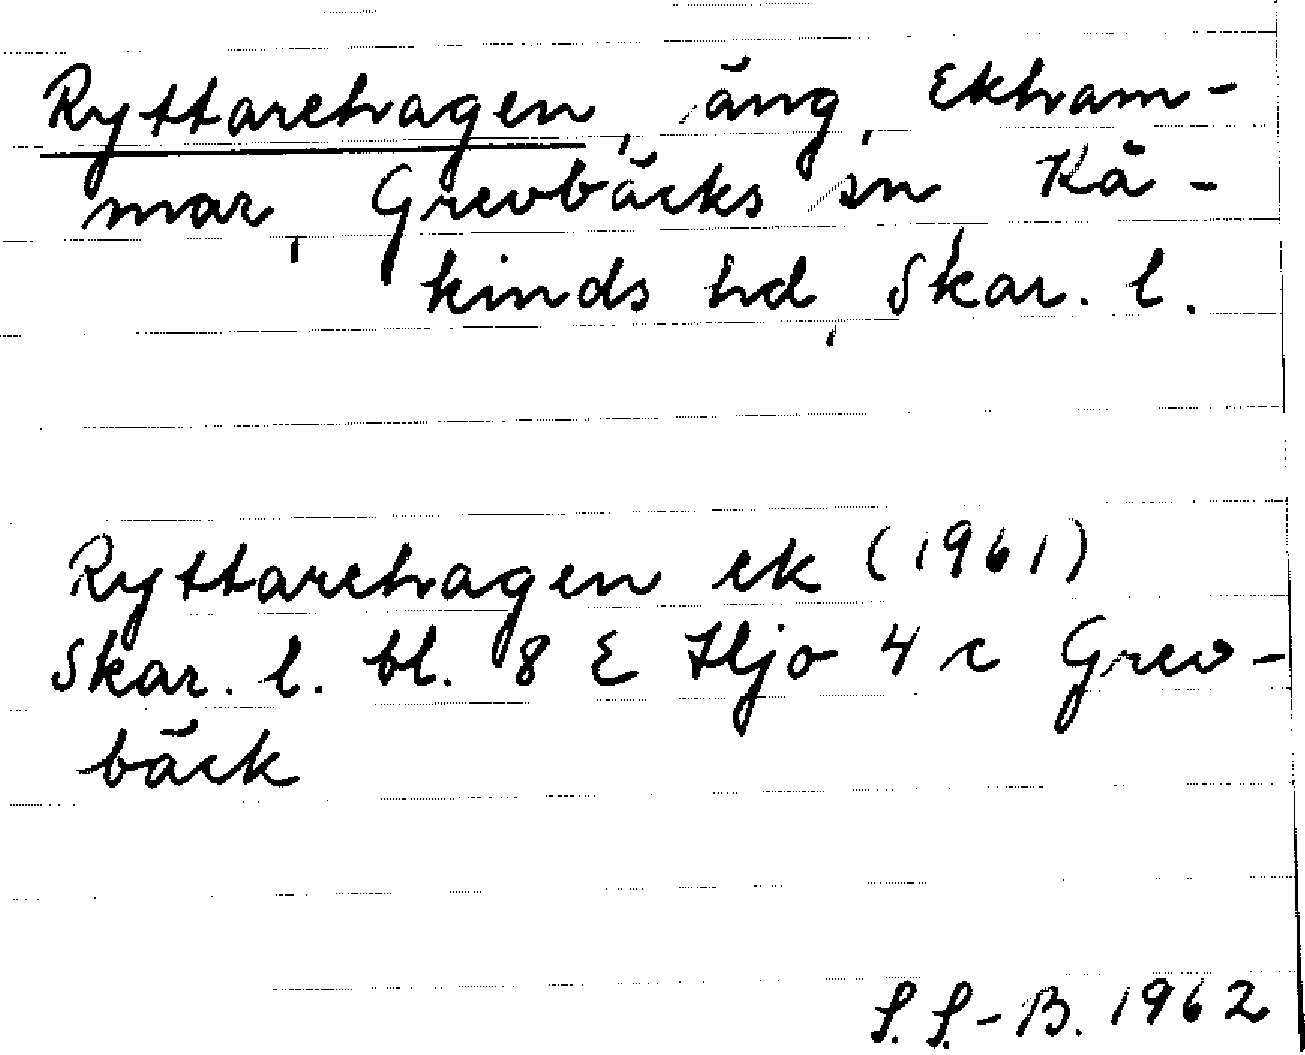 Ryttarehagen, äng, Ekham-
mar, Grevbäcks sn Kå-
kinds hd, Skar. l.
Ryttarehagen ek (1961)
Skar. l. bl. 8 E Hjo 4 c Grev-
bäck
S. S.-B. 1962